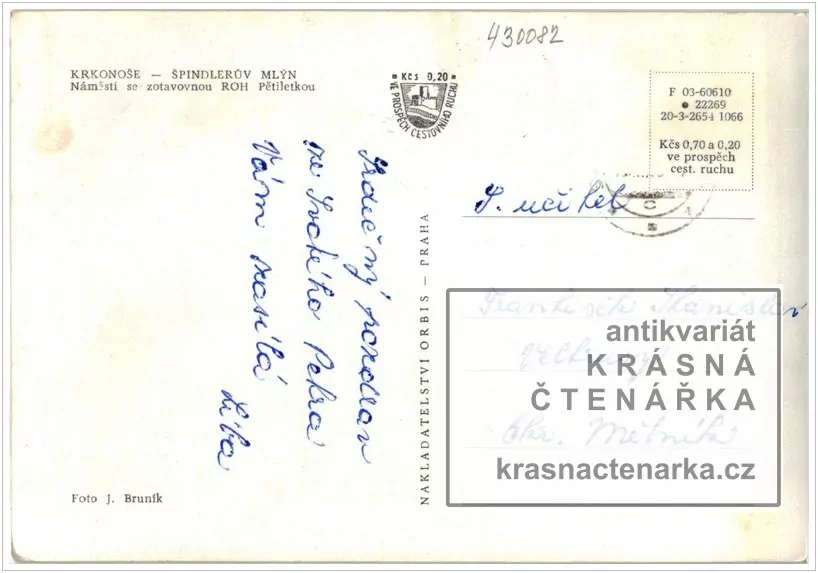 430082
KRKONOŠE — ŠPINDLERŮV MLÝN
Náměstí se zotavovnou ROH Pětiletkou
Kčs 0,20
VE PROSPĚCH CESTOVNÍHO RUCHU
F 03-60610
22269
20-3-2654 1066
Kčs 0,70 a 0,20
ve prospěch
cest. ruchu
C
s
Srdečný pozdrav
ze Svatého Petra
Vám zasílá
Liba
NAKLADATELSTVÍ ORBIS — PRAHA
S. učitel
Stanislav
okr. Mělník
antikvariát
KRÁSNÁ
ČTENÁŘKA
krasnactenarka.cz
Foto J. Bruník